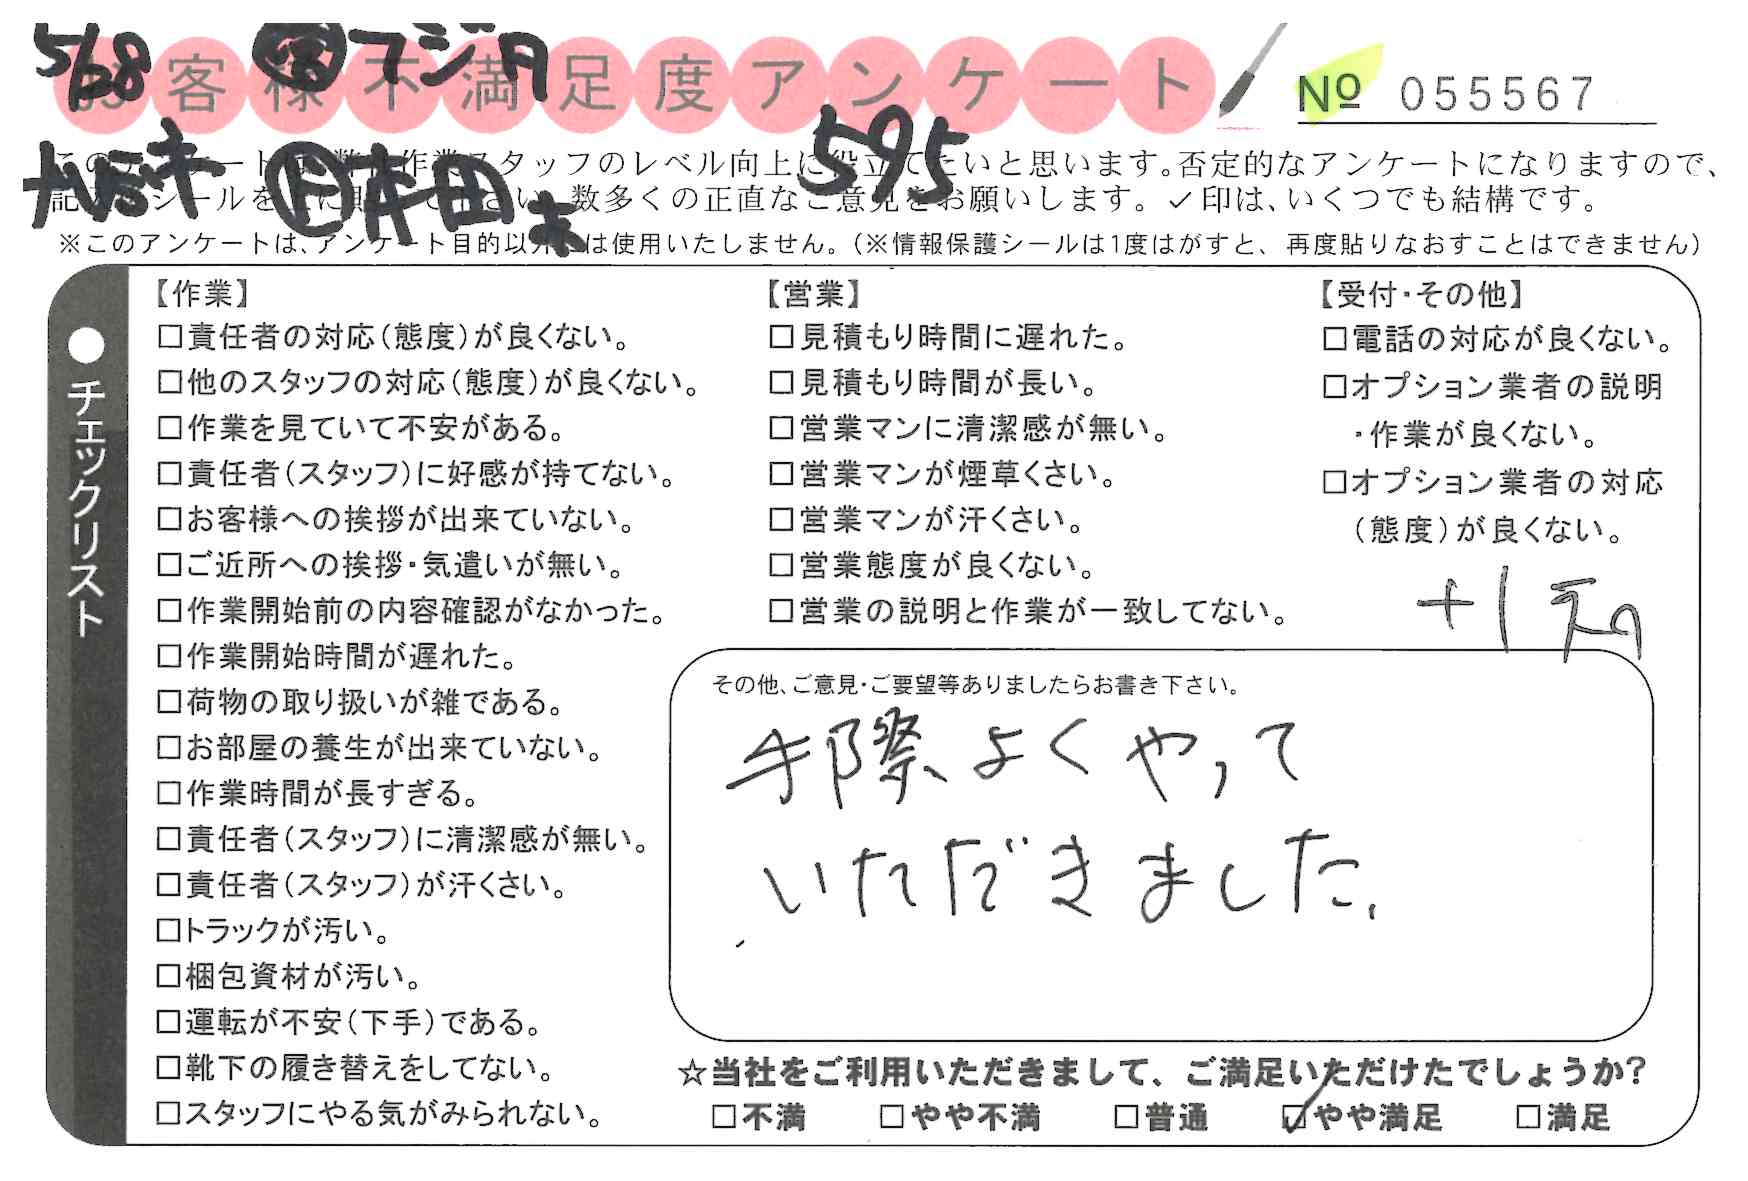 568 営 フジタ
お客様不満足度アンケート
№ 055567
595
このアンケートは、弊社作業スタッフのレベル向上に役立てたいと思います。否定的なアンケートになりますので、
数多くの正直なご意見をお願いします。✓印は、いくつでも結構です。
本田
※このアンケートは、アンケート目的以外には使用いたしません。(※情報保護シールは1度はがすと、再度貼りなおすことはできません)
●チェックリスト
【作業】
□責任者の対応(態度)が良くない。
□他のスタッフの対応(態度)が良くない。
□作業を見ていて不安がある。
□責任者(スタッフ)に好感が持てない。
□お客様への挨拶が出来ていない。
□ご近所への挨拶・気遣いが無い。
□作業開始前の内容確認がなかった。
□作業開始時間が遅れた。
□荷物の取り扱いが雑である。
□お部屋の養生が出来ていない。
□作業時間が長すぎる。
□責任者(スタッフ)に清潔感が無い。
□責任者(スタッフ)が汗くさい。
□トラックが汚い。
□梱包資材が汚い。
□運転が不安(下手)である。
□靴下の履き替えをしてない。
□スタッフにやる気がみられない。
【営業】
□見積もり時間に遅れた。
□見積もり時間が長い。
□営業マンに清潔感が無い。
□営業マンが煙草くさい。
□営業マンが汗くさい。
□営業態度が良くない。
□営業の説明と作業が一致してない。
【受付・その他】
□電話の対応が良くない。
□オプション業者の説明
・作業が良くない。
□オプション業者の対応
(態度)が良くない。
その他、ご意見・ご要望等ありましたらお書き下さい。
手際よくやって
いただきました。
☆当社をご利用いただきまして、ご満足いただけたでしょうか?
□不満 □やや不満 □普通 ☑やや満足 □満足